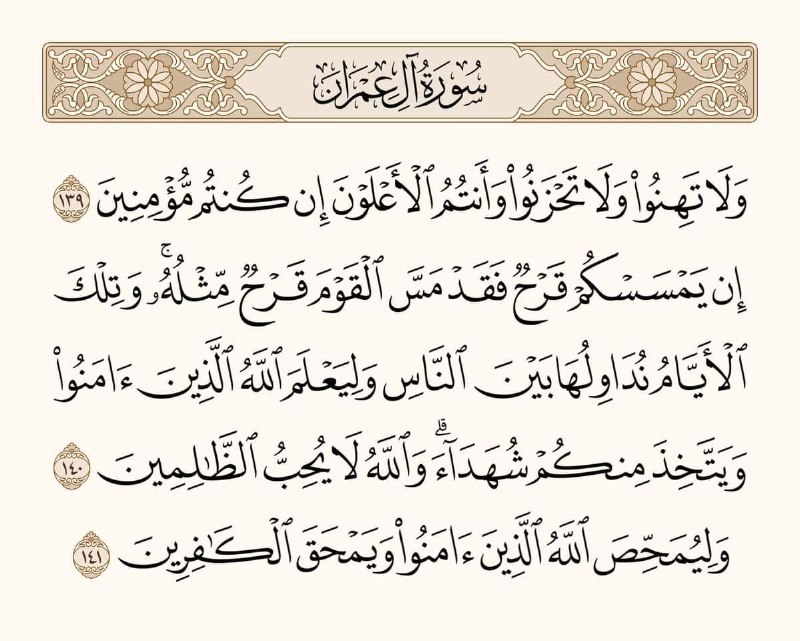 سُورَةُ آلِ عِمۡرَانَ
وَلَا تَهِنُواْ وَلَا تَحۡزَنُواْ وَأَنتُمُ ٱلۡأَعۡلَوۡنَ إِن كُنتُم مُّؤۡمِنِينَ ١٣٩
إِن يَمۡسَسۡكُمۡ قَرۡحٞ فَقَدۡ مَسَّ ٱلۡقَوۡمَ قَرۡحٞ مِّثۡلُهُۥۚ وَتِلۡكَ
ٱلۡأَيَّامُ نُدَاوِلُهَا بَيۡنَ ٱلنَّاسِ وَلِيَعۡلَمَ ٱللَّهُ ٱلَّذِينَ ءَامَنُواْ
وَيَتَّخِذَ مِنكُمۡ شُهَدَآءَۗ وَٱللَّهُ لَا يُحِبُّ ٱلظَّٰلِمِينَ ١٤٠
وَلِيُمَحِّصَ ٱللَّهُ ٱلَّذِينَ ءَامَنُواْ وَيَمۡحَقَ ٱلۡكَٰفِرِينَ ١٤١